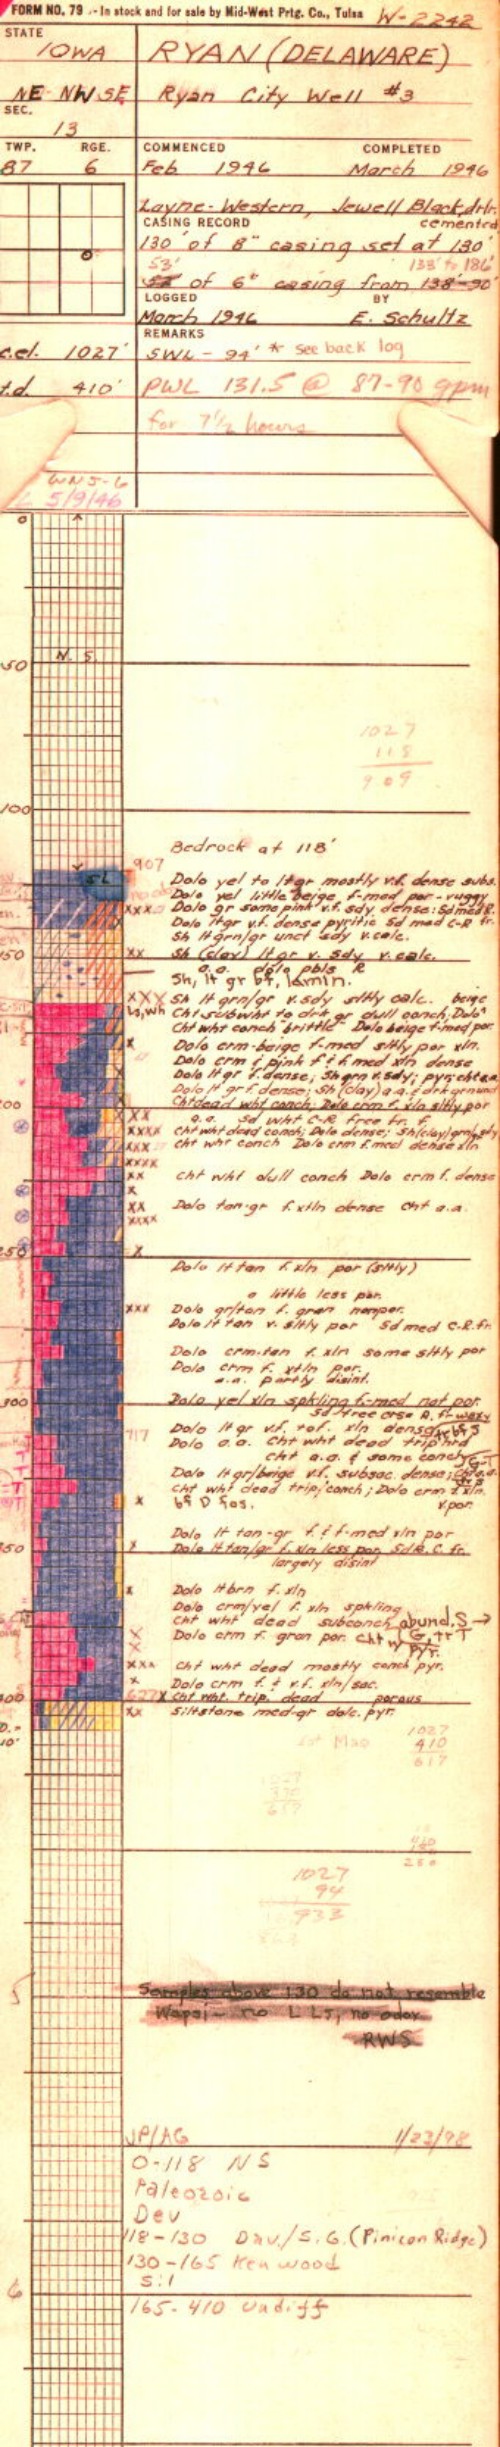 FORM NO. 79 - In stock and for sale by Mid-West Prtg. Co., Tulsa W-2242
STATE
IOWA RYAN (DELAWARE)
NE NW SE Ryan City Well #3
SEC.
13
TWP. RGE. COMMENCED COMPLETED
87 6 Feb 1946 March 1946
Layne-Western, Jewell Black, drlr.
CASING RECORD cemented
130' of 8" casing set at 130'
53' 133' to 186'
of 6" casing from 138'-90'
LOGGED BY
March 1946 E. Schultz
REMARKS
c.el. 1027' SWL - 94' * see back log
t.d. 410' PWL 131.5 @ 87-90 gpm
for 7 1/2 hours
WNS-6
5/9/46
0
N. S.
50
1027
118
909
100
Bedrock at 118'
907
SL
Dolo yel to ltgr mostly v.f. dense subs.
Dolo yel little beige f-med por-vuggy
xxx Dolo gr some pink v.f. sdy dense: Sd med R.
Dolo ltgr v.f. dense pyritic Sd med C-R fr.
Sh ltgrn/gr unct sdy v.calc.
150 xx Sh (clay) ltgr v. sdy v. calc.
a.a. dolo pbls R
Sh, lt gr bf, lamin.
xxx Sh lt grn/gr v.sdy sltly calc. beige
Ls, wh Cht subwht to drk gr dull conch, Dolo
Cht wht conch brittle Dolo beige f-med por
x Dolo crm-beige f-med sltly por xln.
Dolo crm & pink f & f. med xln dense
Dolo lt gr f. dense; Sh grn v. sdy; pyr; cht a.a
Dolo lt gr f. dense; Sh (clay) a.a.
200 Cht dead wht conch; Dolo crm f. xln sltly por
xx a.a. Sd wht C-R free fr. f.
xxxx Cht wht dead conch; Dolo dense; Sh(clay) grn/sdy
xxx Cht wht conch Dolo crm f.med dense xln
xxxx
xx Cht wht dull conch Dolo crm f. dense
x
xx Dolo tan-gr f. xtln dense Cht a.a.
xxxx
250 x
Dolo lt tan f. xln por (sltly)
a little less por.
xxx Dolo gr/tan f. gran nonpor.
Dolo lt tan v. sltly por Sd med C.R. fr.
Dolo crm-tan f. xln some sltly por
Dolo crm f. xtln por.
a.a. partly disint.
300 Dolo yel xln spkling f-med not por
Sd-free crse R. fr waxy
717 Dolo lt gr v.f. to f. xln dense tr bf S
Dolo a.a. Cht wht dead trip hrd
Cht a.a. & some conch G-T
Dolo lt gr/beige v.f. subsac. dense;
Cht wht dead trip/conch; Dolo crm f. xln.
x bf D fos. v.por.
Dolo lt tan-gr f. & f-med xln por
350 x Dolo lt tan/gr f. xln less por Sd R. C. fr.
largely disint
x Dolo lt brn f. xln
Dolo crm/yel f. xln spkling
Cht wht dead subconch abund. S →
x Dolo crm f. gran por. Cht w/ G, tr T
x pyr.
xxx Cht wht dead mostly conch pyr.
x Dolo crm f. & v.f. xln/sac.
400 627 x Cht wht. trip. dead porous
xx Siltstone med-gr dolc. pyr.
1027
410
617
1027
94
933
5
Samples above 130 do not resemble
Wapsi - no L Ls, no odor
RWS
JP/AG 1/23/98
0-118 NS
Paleozoic
Dev
118-130 Dav./S.G. (Pinicon Ridge)
130-165 Kenwood
Sil
6
165-410 Undiff